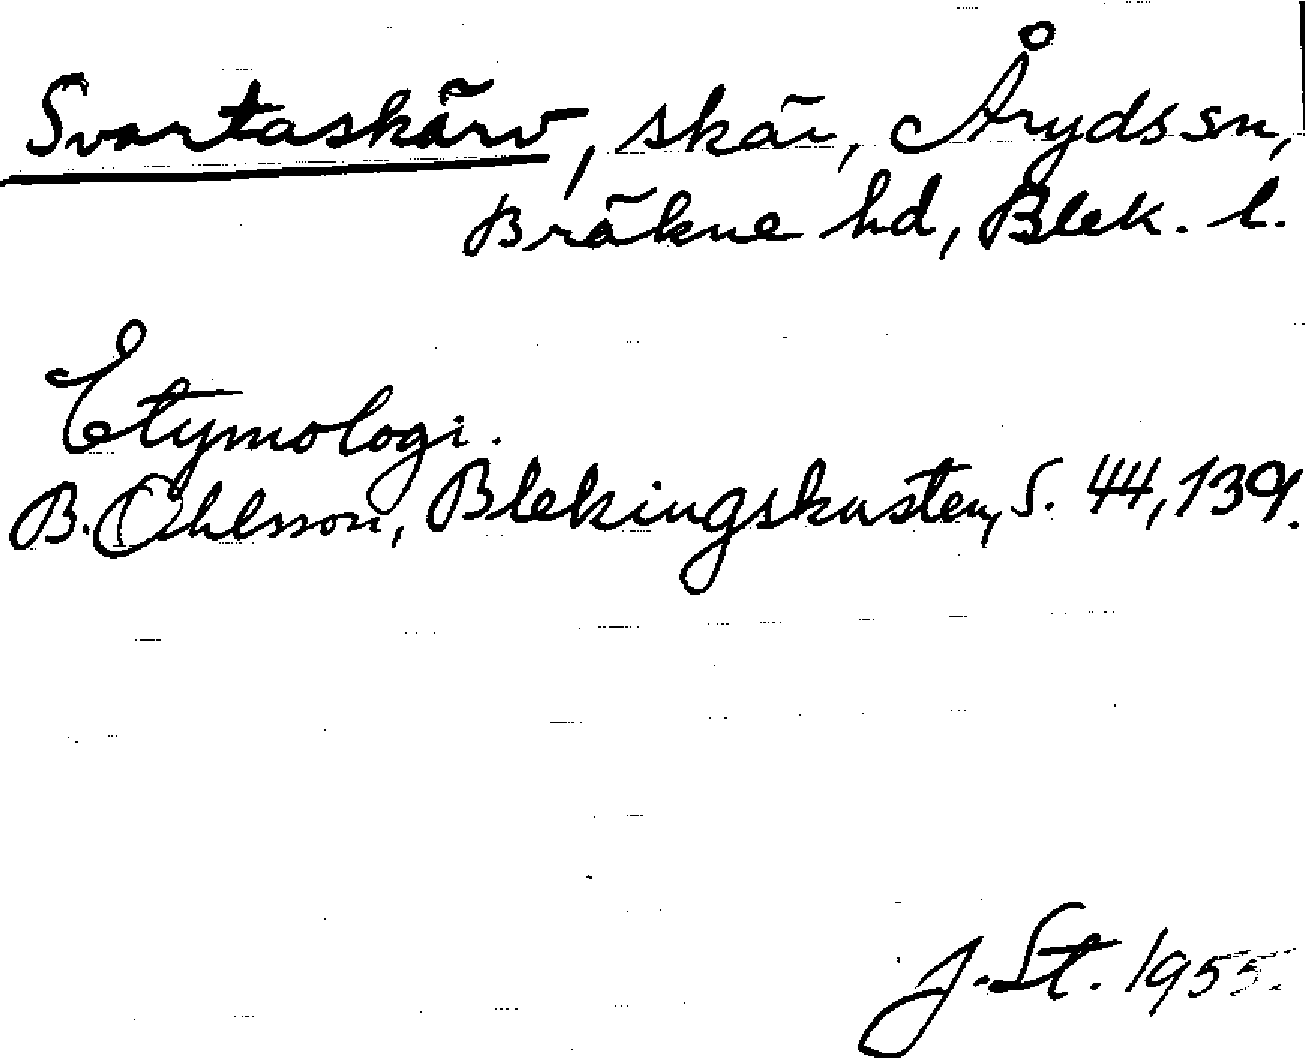 Svartaskärv, skär, Åryds sn,
Bräkne hd, Blek. l.
Etymologi.
B. Ohlsson, Blekingskusten, s. 44, 139.
J. St. 1955.